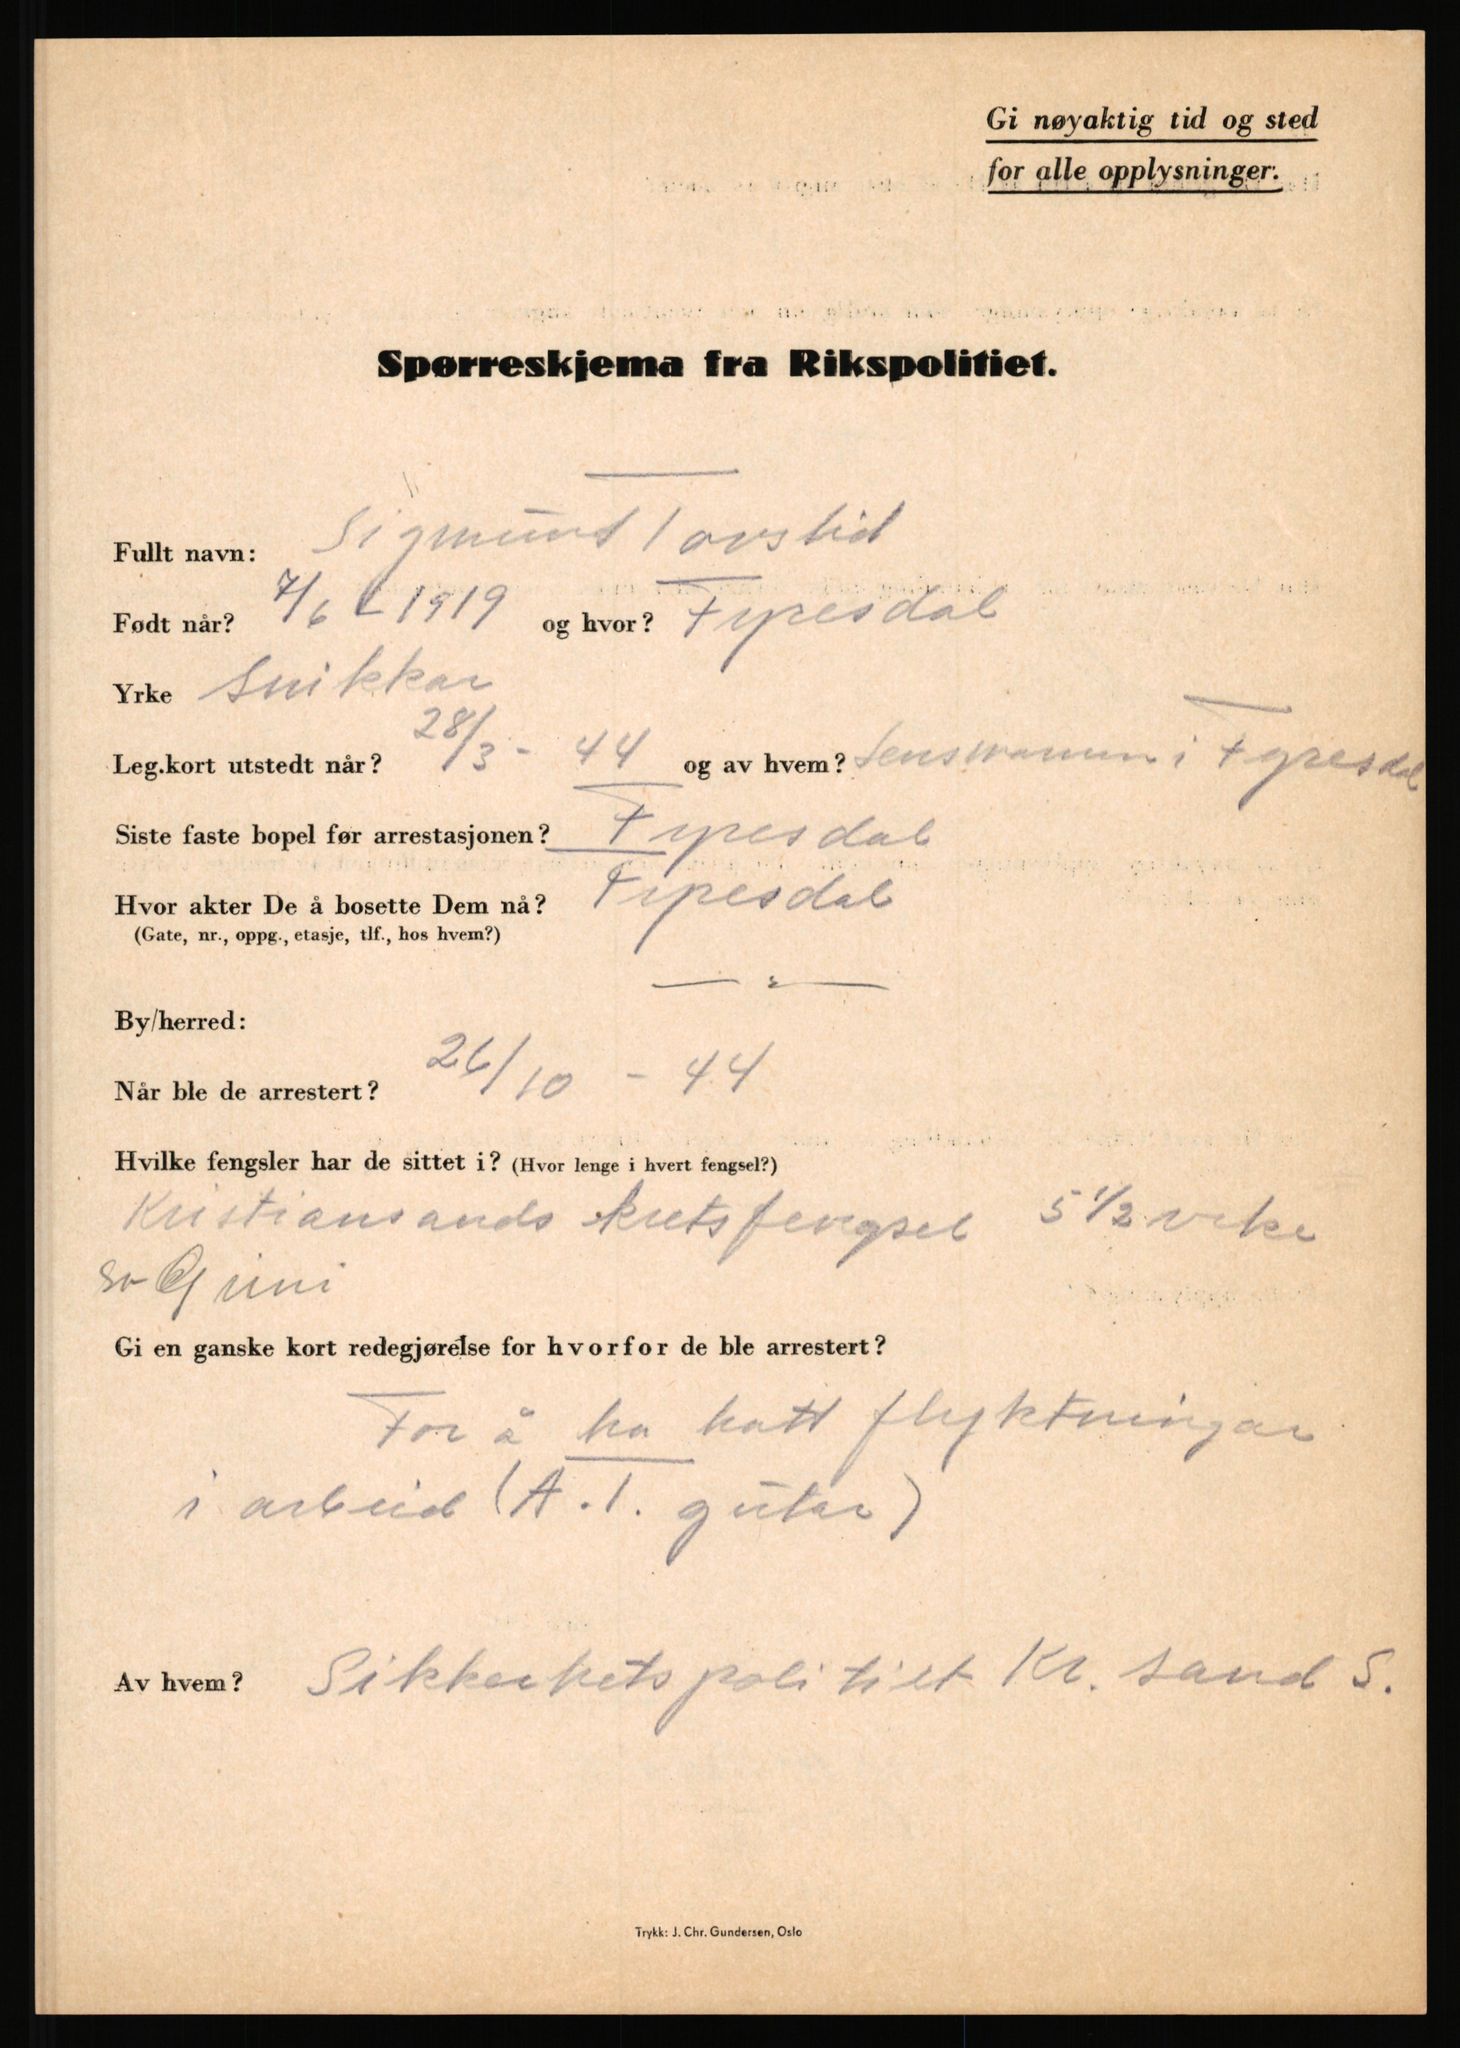 Gi nøyaktig tid og sted
for alle opplysninger.
Spørreskjema fra Rikspolitiet.
Fullt navn: Sigmund Tovslid
Født når? 7/6 - 1919 og hvor? Fyresdal
Yrke Snikkar
Leg.kort utstedt når? 28/3 - 44 og av hvem? Lensmannen i Fyresdal
Siste faste bopel før arrestasjonen? Fyresdal
Hvor akter De å bosette Dem nå? Fyresdal
(Gate, nr., oppg., etasje, tlf., hos hvem?)
By/herred: — " —
Når ble de arrestert? 26/10 - 44
Hvilke fengsler har de sittet i? (Hvor lenge i hvert fengsel?)
Kristiansands kretsfengsel 5 1/2 veke
Gi en ganske kort redegjørelse for hvorfor de ble arrestert?
For å ha hatt flyktningar
i arbeid (A.T. gutar)
Av hvem? Sikkerhetspolitiet Kr. sand S.
Trykk: J. Chr. Gundersen, Oslo